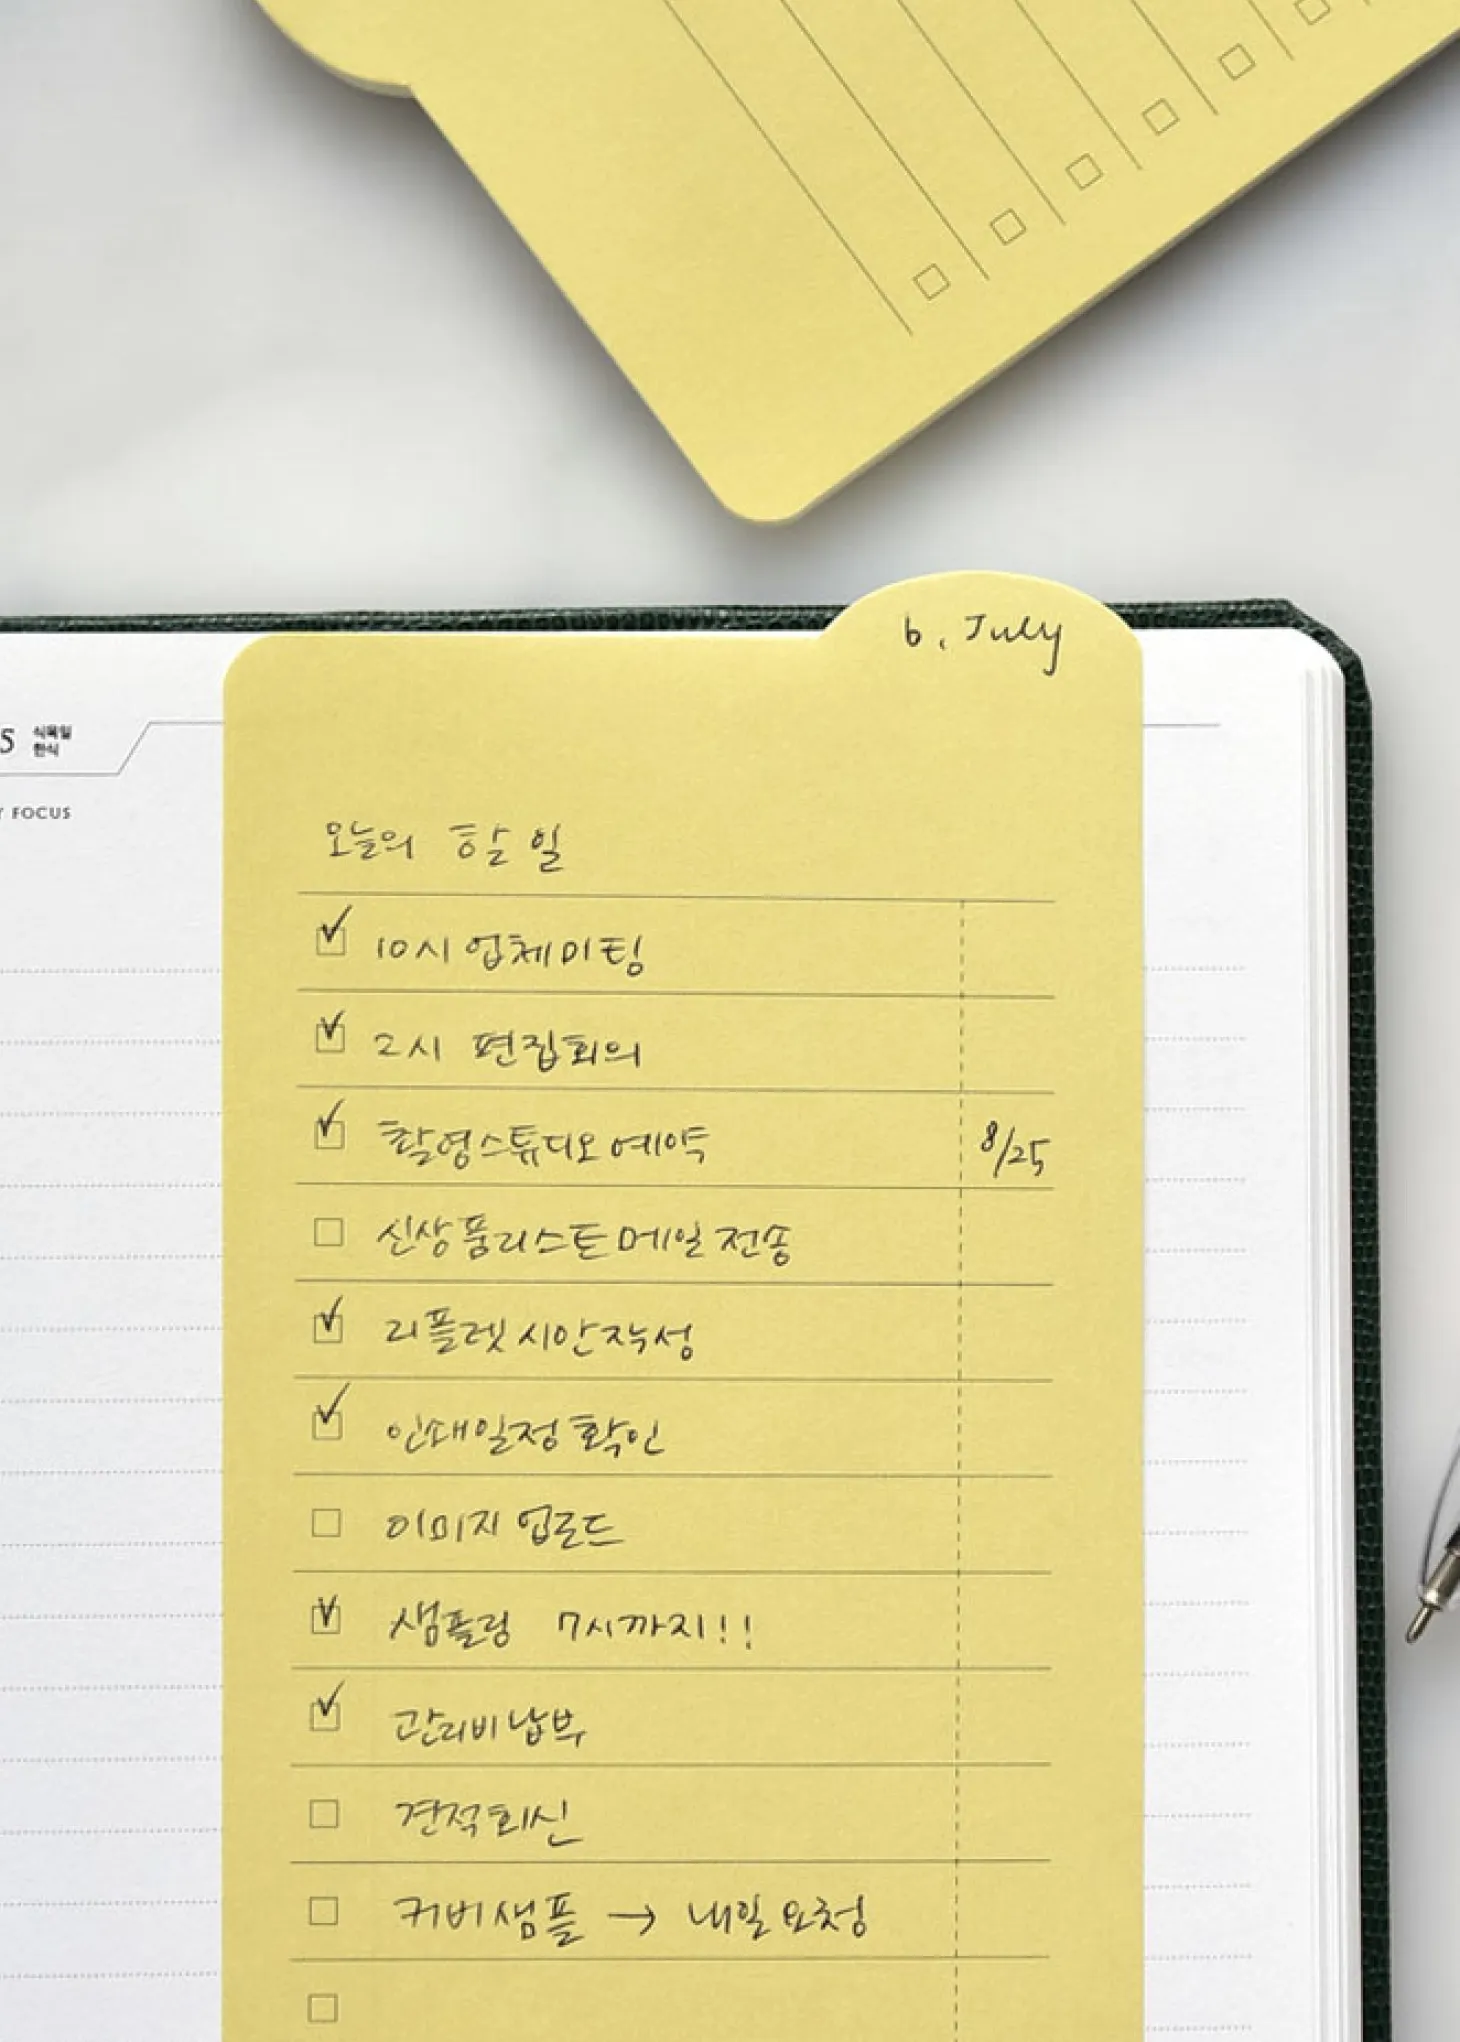 6. July
5 식목일
한식
FOCUS
오늘의 할 일
10시 업체미팅
2시 편집회의
촬영스튜디오예약 8/25
신상품리스트메일전송
리플렛시안작성
인쇄일정확인
이미지 업로드
샘플링 7시까지!!
관리비납부
견적회신
커버샘플 → 내일요청